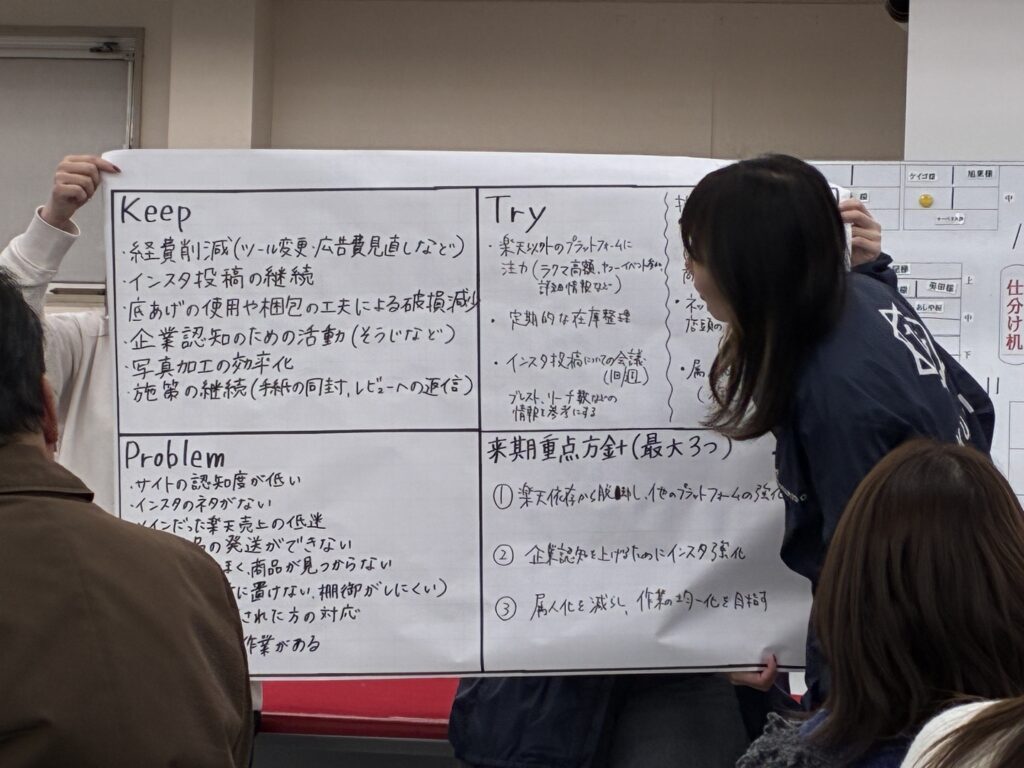 Keep
・経費削減(ツール変更・広告費見直しなど)
・インスタ投稿の継続
・底あげの使用や梱包の工夫による破損減少
・企業認知のための活動(そうじなど)
・写真加工の効率化
・施策の継続(手紙の同封、レビューへの返信)
Try
・楽天以外のプラットフォームに
注力(ラクマ高額、ヤフーイベント
詳細情報など)
・定期的な在庫整理
・インスタ投稿についての会議
(1回/週)
ブレスト、リーチ数などの
情報を参考にする
・ネッ
店頭の
・属人
Problem
・サイトの認知度が低い
・インスタのネタがない
メインだった楽天売上の低迷
の発送ができない
商品が見つからない
に置けない、棚卸がしにくい)
された方の対応
作業がある
来期重点方針(最大3つ)
① 楽天依存から脱却し、他のプラットフォームの強化
② 企業認知を上げるためにインスタ強化
③ 属人化を減らし、作業の均一化を目指す
ケイゴ様
旭葉様
中
上
中
下
仕分け机